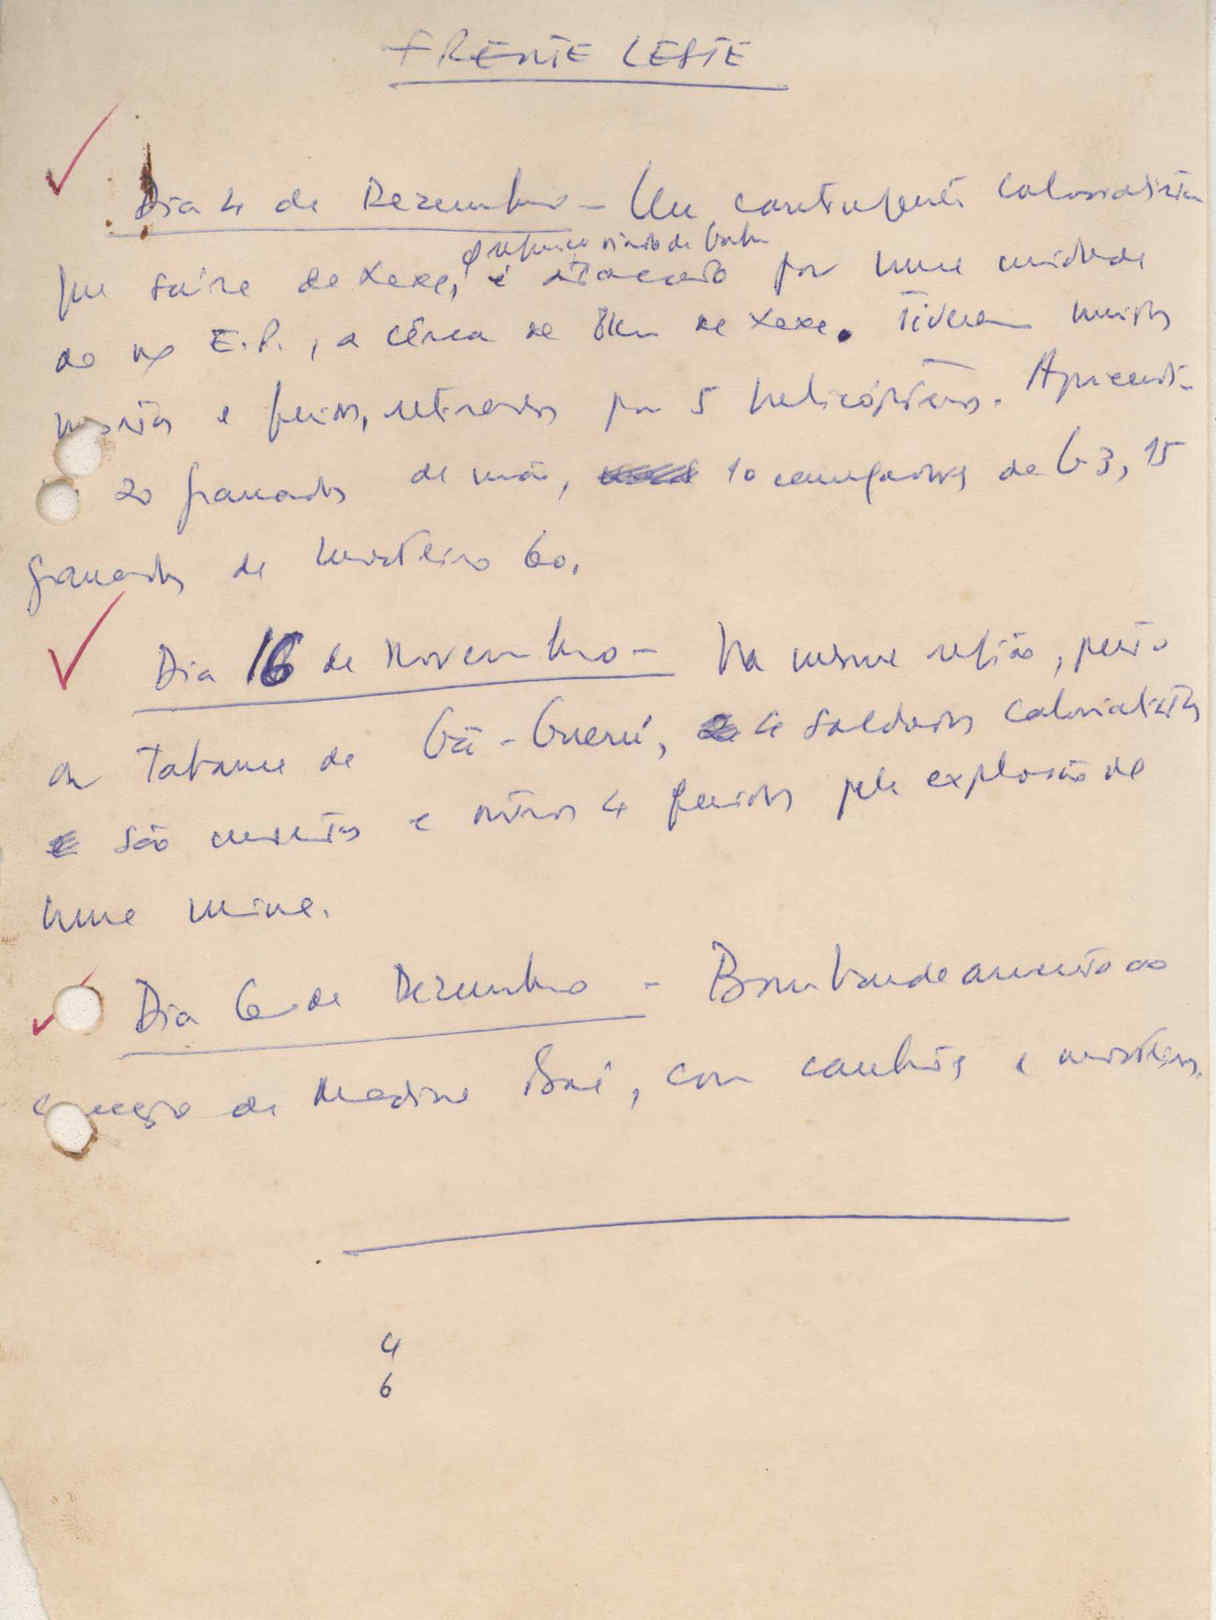 FRENTE LESTE
Dia 4 de Dezembro - Um contingente colonialista
que saíra de Xexe, e reforço vindo de Gabu é atacado por uma unidade
do nx E.P., a cêrca de 8Km de Xexe. Tiveram muitos
mortos e feridos, retirados por 5 helicópteros.
20 granadas de mão, 10 carregadores de G3, 15
granadas de morteiro 60.
Dia 16 de Novembro - Na mesma região, perto
da Tabanca de Gã-Guerú, 4 soldados colonialistas
são mortos e outros 4 feridos pela explosão de
uma mina.
Dia 6 de Dezembro - Bombardeamento do
de Madina Boé, com canhões e morteiros.
4
6